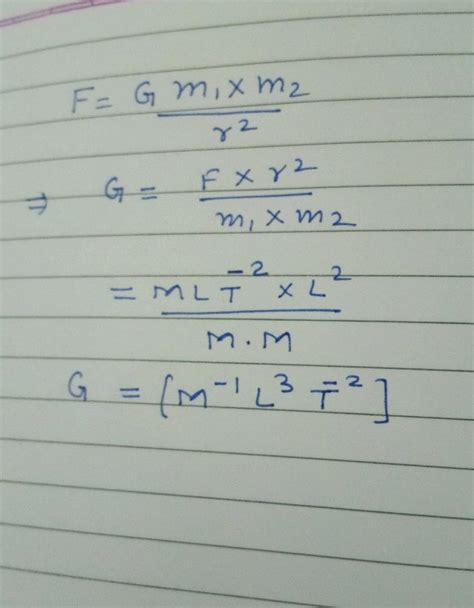 F = G m₁ × m₂ / r²
⇒ G = F × r² / m₁ × m₂
= M L T⁻² × L² / M . M
G = [M⁻¹ L³ T⁻²]